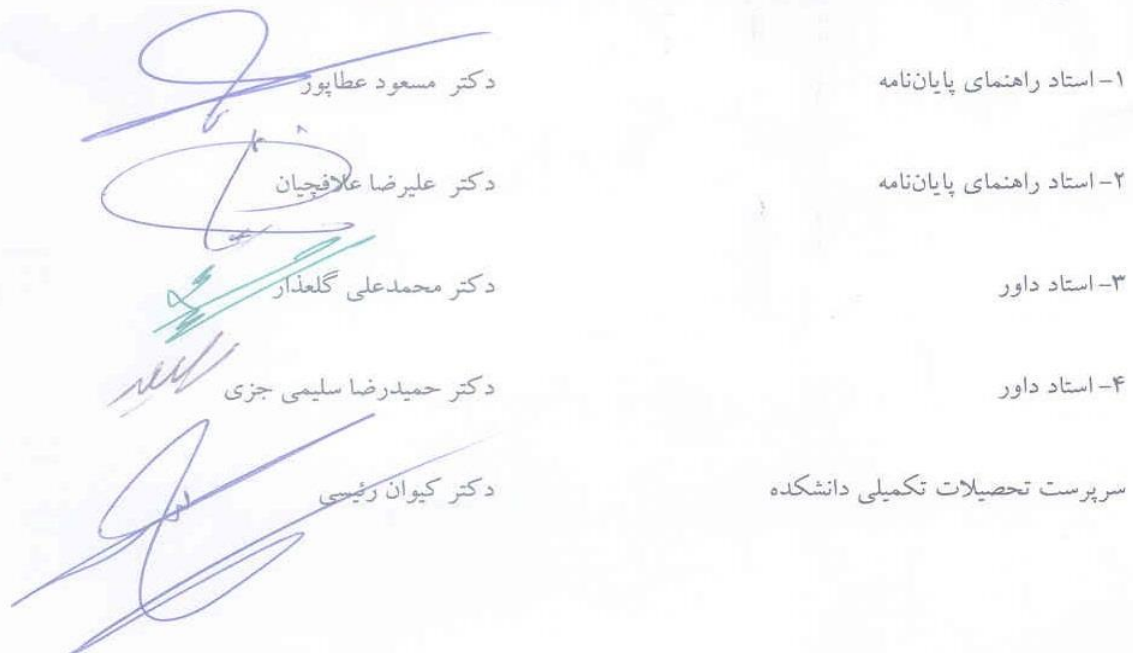 ۱- استاد راهنمای پایان‌نامه دکتر مسعود عطاپور
۲- استاد راهنمای پایان‌نامه دکتر علیرضا علافچیان
۳- استاد داور دکتر محمدعلی گلعذار
۴- استاد داور دکتر حمیدرضا سلیمی جزی
سرپرست تحصیلات تکمیلی دانشکده دکتر کیوان رئیسی